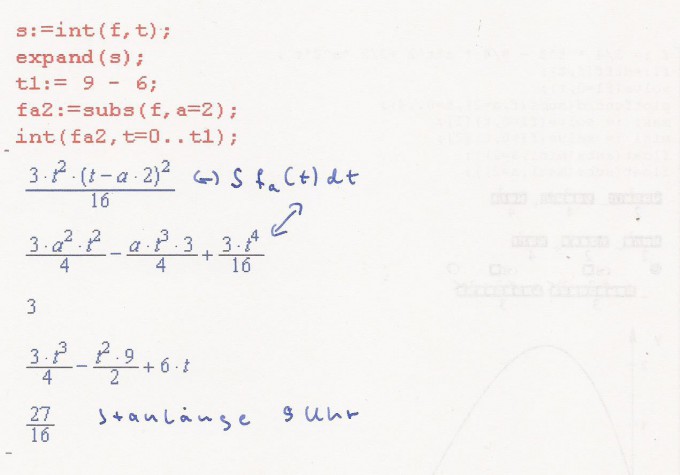 s:=int(f,t);
expand(s);
t1:= 9 - 6;
fa2:=subs(f,a=2);
int(fa2,t=0..t1);
3·t²·(t−a·2)²/16 <-> ∫ fₐ(t) dt
3·a²·t²/4 − a·t³·3/4 + 3·t⁴/16
3
3·t³/4 − t²·9/2 + 6·t
27/16 Staulänge 9 Uhr